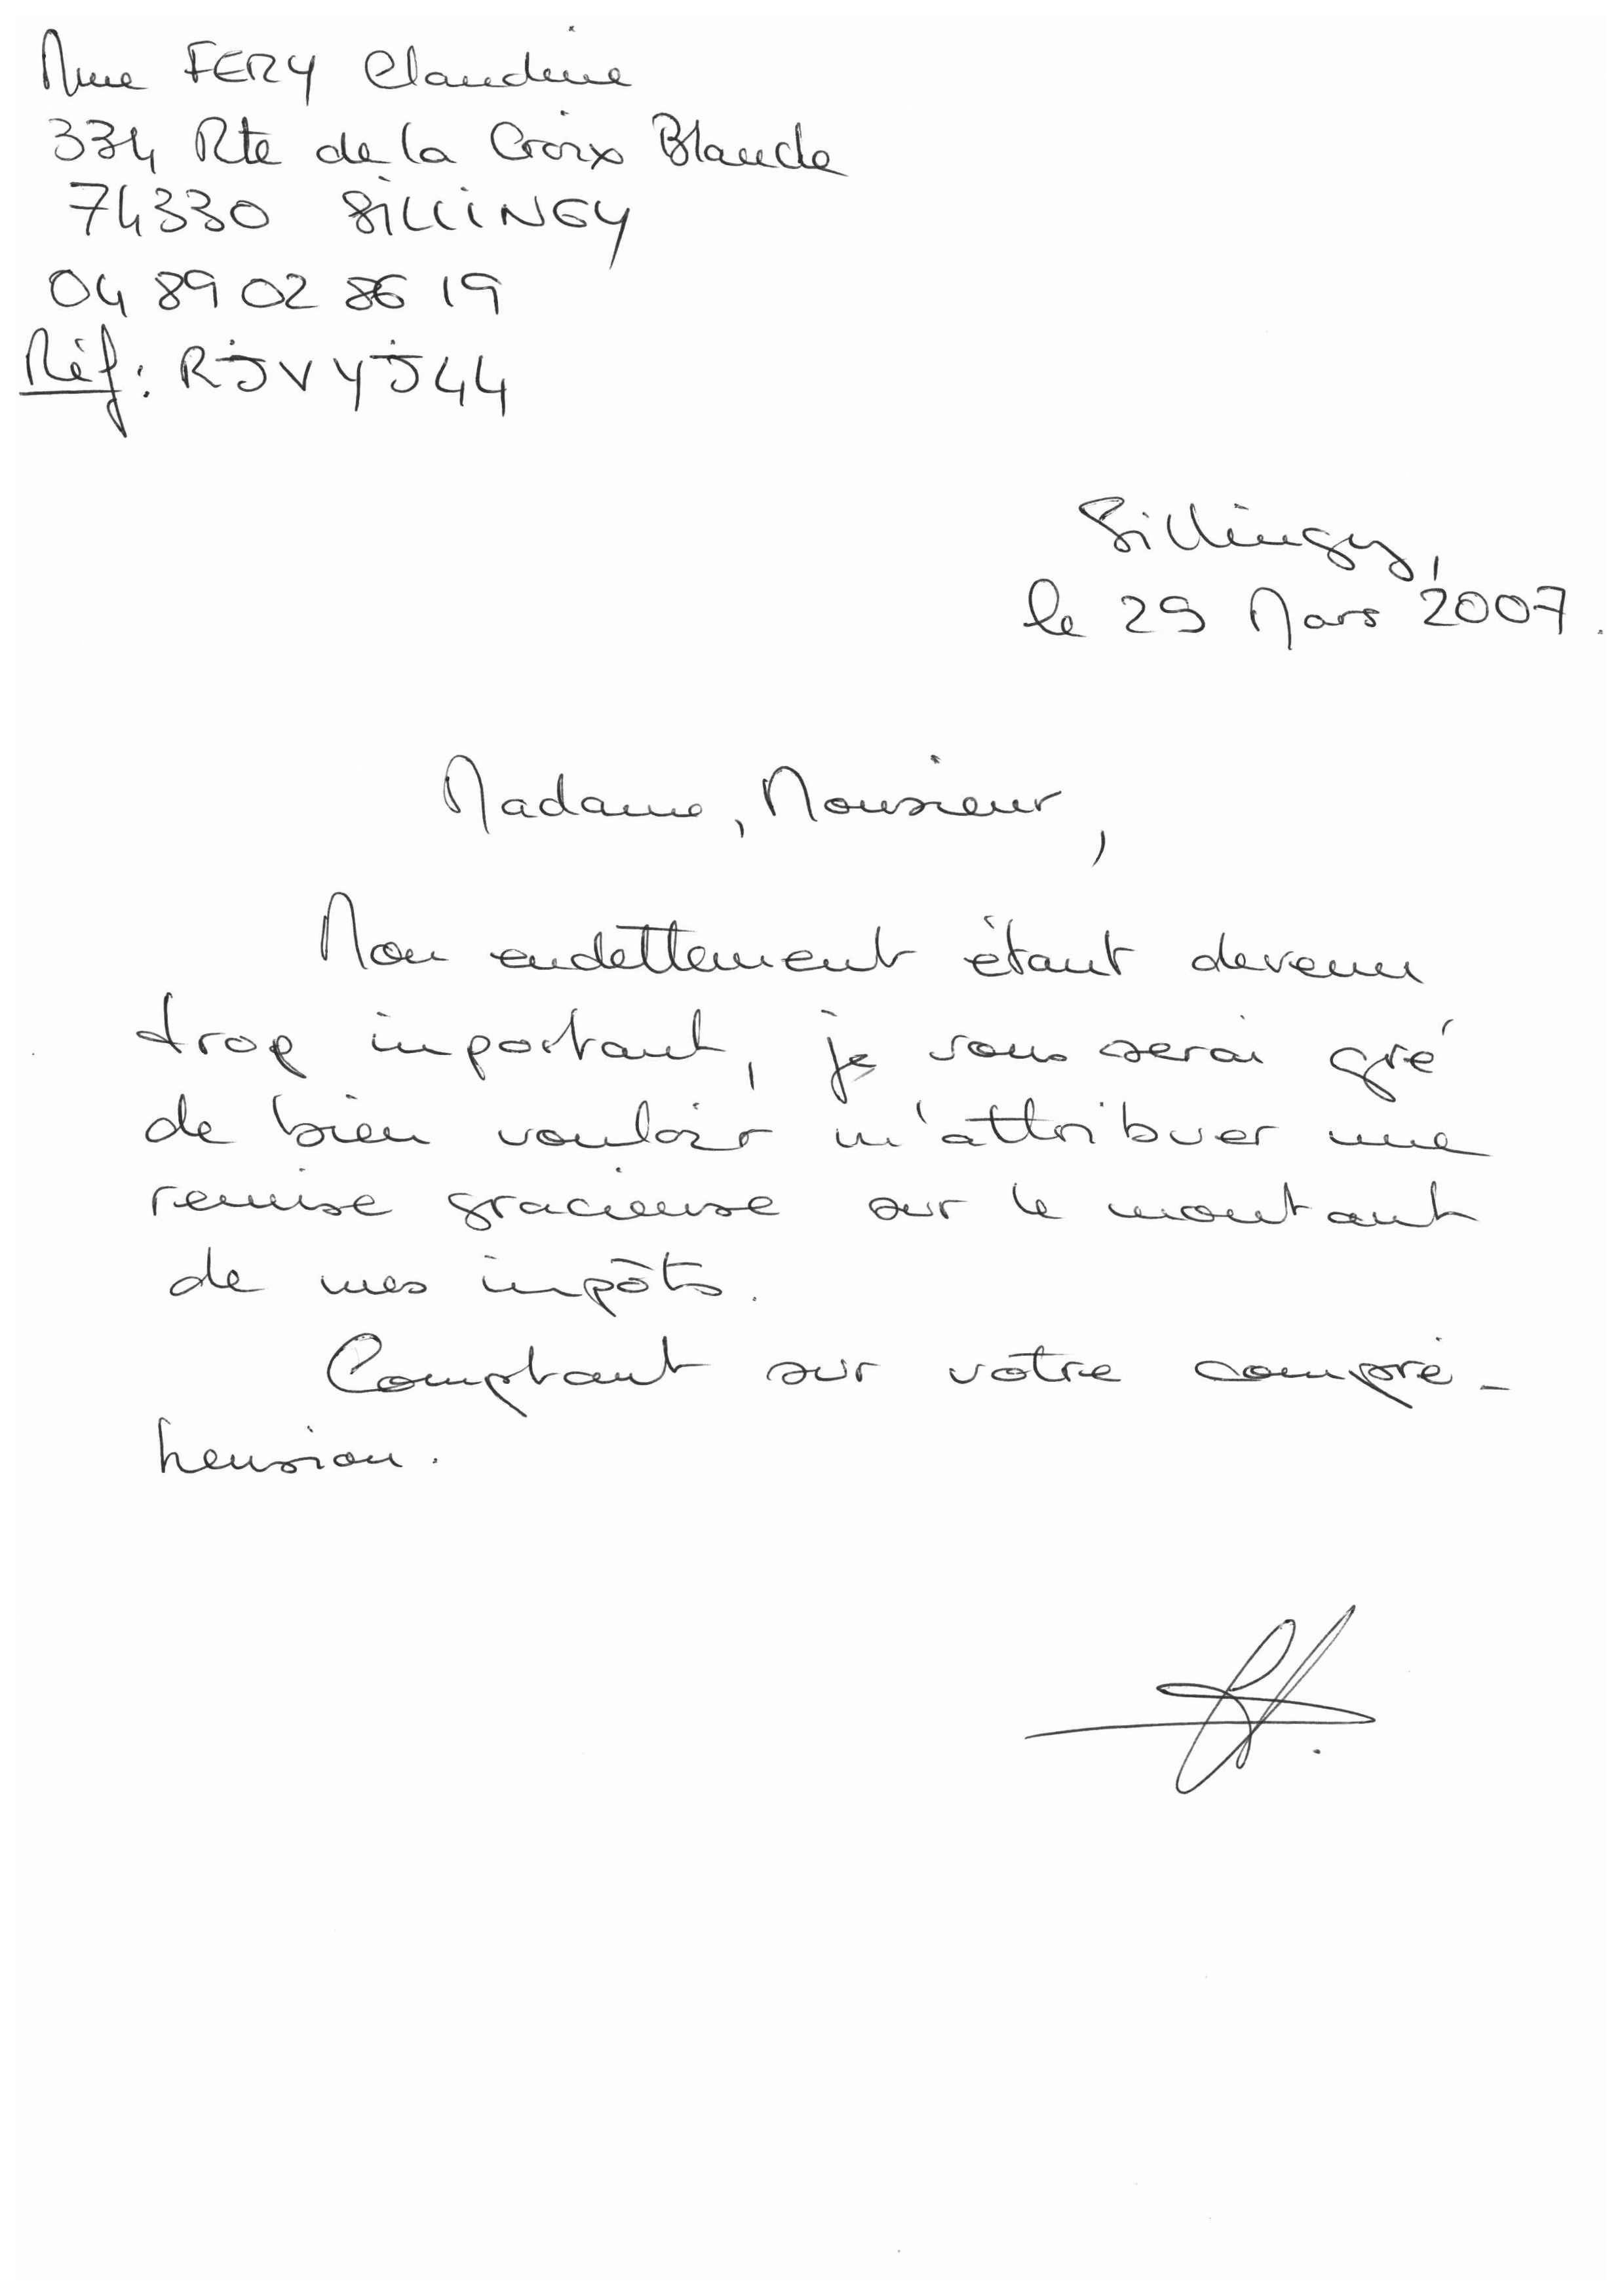 Mme FERY Claudine
334 Rte de la Croix Blanche
74330 SILLINGY
04 89 02 86 19
Réf: RJVYJ44
Sillingy,
le 29 Mars 2007.
Madame, Monsieur,
Mon endettement étant devenu
trop important, je vous serai gré
de bien vouloir m'attribuer une
remise gracieuse sur le montant
de mes impôts.
Comptant sur votre compré-
hension.